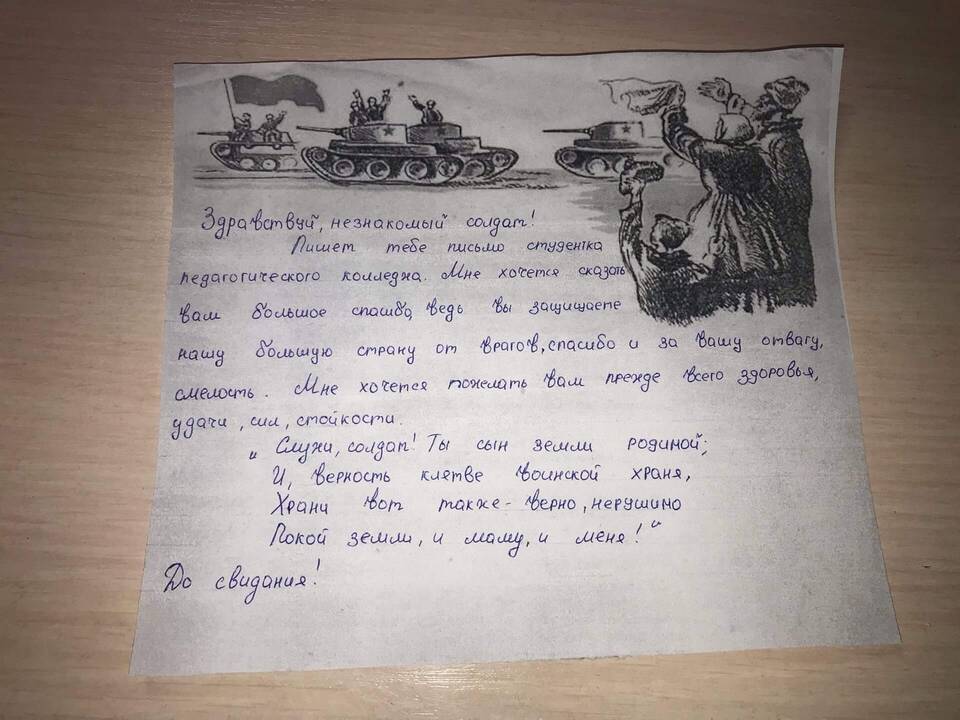 Здравствуй, незнакомый солдат!
Пишет тебе письмо студентка
педагогического колледжа. Мне хочется сказать
вам большое спасибо, ведь вы защищаете
нашу большую страну от врагов, спасибо и за вашу отвагу,
смелость. Мне хочется пожелать вам прежде всего здоровья,
удачи, сил, стойкости.
„Служи, солдат! Ты сын земли родиной;
И, верность клятве воинской храня,
Храни вот также - верно, нерушимо
Покой земли, и маму, и меня!"
До свидания!